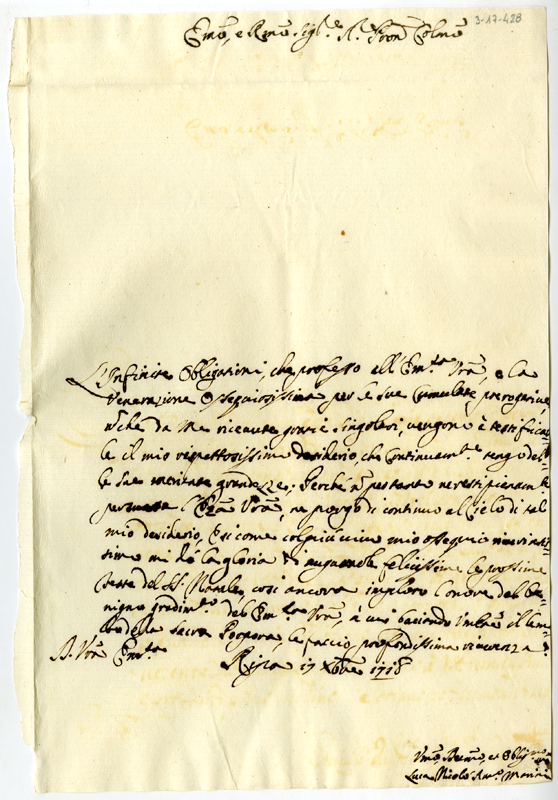 3-17-428
Em̃o, e Rem̃o Sig.re Pron Colm̃o
L'Infinite Obligationi, che professo all'Em.za Vrã, e la
Veneratione Ossequiosissima per le sue Cumulate prerogative,
che da Me riceuute gratie singolari, vengono à testificar
le il mio rispettosissimo desiderio, che Continuam.te tengo del
le Sue meritate grandezze; Perche
l'Em̃a Vrã, ne porgo di continuo al Cielo di tal
mio desiderio, E si come col più uiuo mio ossequio
simo mi dà la gloria di augurarle felicissime le prossime
feste del SS. Natale, così ancora imploro l'onore del Be
nigno gradim.to dell'Em.za Vrã, à cui baciando il lem
bo della Sacra Porpora, le faccio profondissima riuerenza
D. Vrã Em.za
17 Xbre 1718
Vm̃o Deum̃o, et Obligm̃o
Luca Nicolò